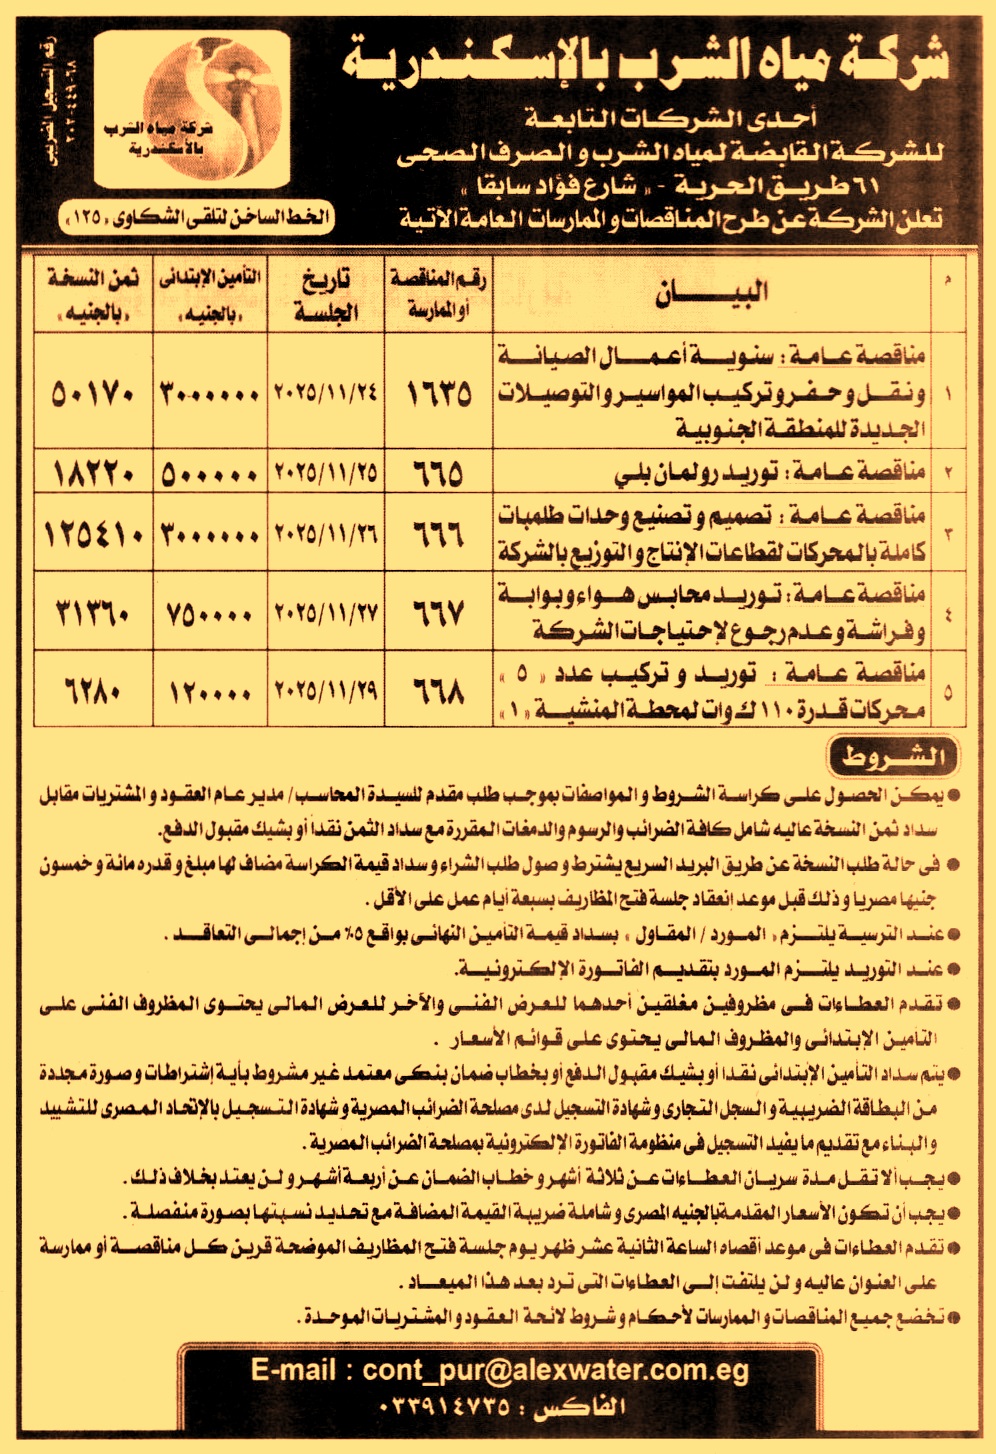 شركة مياه الشرب بالإسكندرية
أحدى الشركات التابعة
للشركة القابضة لمياه الشرب و الصرف الصحى
٦١ طريق الحرية - « شارع فؤاد سابقا »
تعلن الشركة عن طرح المناقصات و الممارسات العامة الآتية
شركة مياه الشرب
بالأسكندرية
الخط الساخن لتلقى الشكاوى «١٢٥»
رقم التسجيل الضريبى
م | البيـــان | رقم المناقصة أو الممارسة | تاريخ الجلسة | التأمين الإبتدائى «بالجنيه» | ثمن النسخة «بالجنيه»
١ | مناقصة عامة : سنوية أعمال الصيانة | ١٦٣٥ | ٢٠٢٥/١١/٢٤ | ٣٠٠٠٠٠٠ | ٥٠١٧٠
ونقل و حفر و تركيب المواسير و التوصيلات
الجديدة للمنطقة الجنوبية
٢ | مناقصة عامة : توريد رولمان بلي | ٦٦٥ | ٢٠٢٥/١١/٢٥ | ٥٠٠٠٠٠ | ١٨٢٢٠
٣ | مناقصة عامة : تصميم و تصنيع وحدات طلمبات | ٦٦٦ | ٢٠٢٥/١١/٢٦ | ٣٠٠٠٠٠٠ | ١٢٥٤١٠
كاملة بالمحركات لقطاعات الإنتاج و التوزيع بالشركة
٤ | مناقصة عامة : توريد محابس هواء و بوابة | ٦٦٧ | ٢٠٢٥/١١/٢٧ | ٧٥٠٠٠٠ | ٣١٣٦٠
و فراشة و عدم رجوع لإحتياجات الشركة
٥ | مناقصة عامة : توريد و تركيب عدد « ٥ » | ٦٦٨ | ٢٠٢٥/١١/٢٩ | ١٢٠٠٠٠ | ٦٢٨٠
محركات قدرة ١١٠ ك وات لمحطة المنشية «١»
الشروط
● يمكن الحصول على كراسة الشروط و المواصفات بموجب طلب مقدم للسيدة المحاسب/ مدير عام العقود و المشتريات مقابل
سداد ثمن النسخة عاليه شامل كافة الضرائب والرسوم والدمغات المقررة مع سداد الثمن نقداً أو بشيك مقبول الدفع.
● فى حالة طلب النسخة عن طريق البريد السريع يشترط وصول طلب الشراء و سداد قيمة الكراسة مضاف لها مبلغ و قدره مائة و خمسون
جنيها مصرياً و ذلك قبل موعد إنعقاد جلسة فتح المظاريف بسبعة أيام عمل على الأقل .
● عند الترسية يلتزم « المورد / المقاول » بسداد قيمة التأمين النهائى بواقع ٥٪ من إجمالى التعاقد .
● عند التوريد يلتزم المورد بتقديم الفاتورة الإلكترونية.
● تقدم العطاءات فى مظروفين مغلقين أحدهما للعرض الفنى والآخر للعرض المالى يحتوى المظروف الفنى على
التامين الإبتدائى والمظروف المالى يحتوى على قوائم الأسعار .
● يتم سداد التأمين الإبتدائى نقدا أو بشيك مقبول الدفع أو بخطاب ضمان بنكى معتمد غير مشروط بأية إشتراطات و صورة مجددة
من البطاقة الضريبية و السجل التجارى و شهادة التسجيل لدى مصلحة الضرائب المصرية و شهادة التسجيل بالإتحاد المصرى للتشييد
و البناء مع تقديم ما يفيد التسجيل فى منظومة الفاتورة الإلكترونية بمصلحة الضرائب المصرية .
● يجب ألا تقل مدة سريان العطاءات عن ثلاثة أشهر و خطاب الضمان عن أربعة أشهر و لن يعتد بخلاف ذلك .
● يجب أن تكون الأسعار المقدمة بالجنيه المصرى و شاملة ضريبة القيمة المضافة مع تحديد نسبتها بصورة منفصلة .
● تقدم العطاءات فى موعد أقصاه الساعة الثانية عشر ظهر يوم جلسة فتح المظاريف الموضحة قرين كل مناقصة أو ممارسة
على العنوان عاليه و لن يلتفت إلى العطاءات التى ترد بعد هذا الميعاد .
● تخضع جميع المناقصات و الممارسات لأحكام و شروط لائحة العقود و المشتريات الموحدة .
E-mail : cont_pur@alexwater.com.eg
الفاكس : ٠٣٣٩١٤٧٣٥